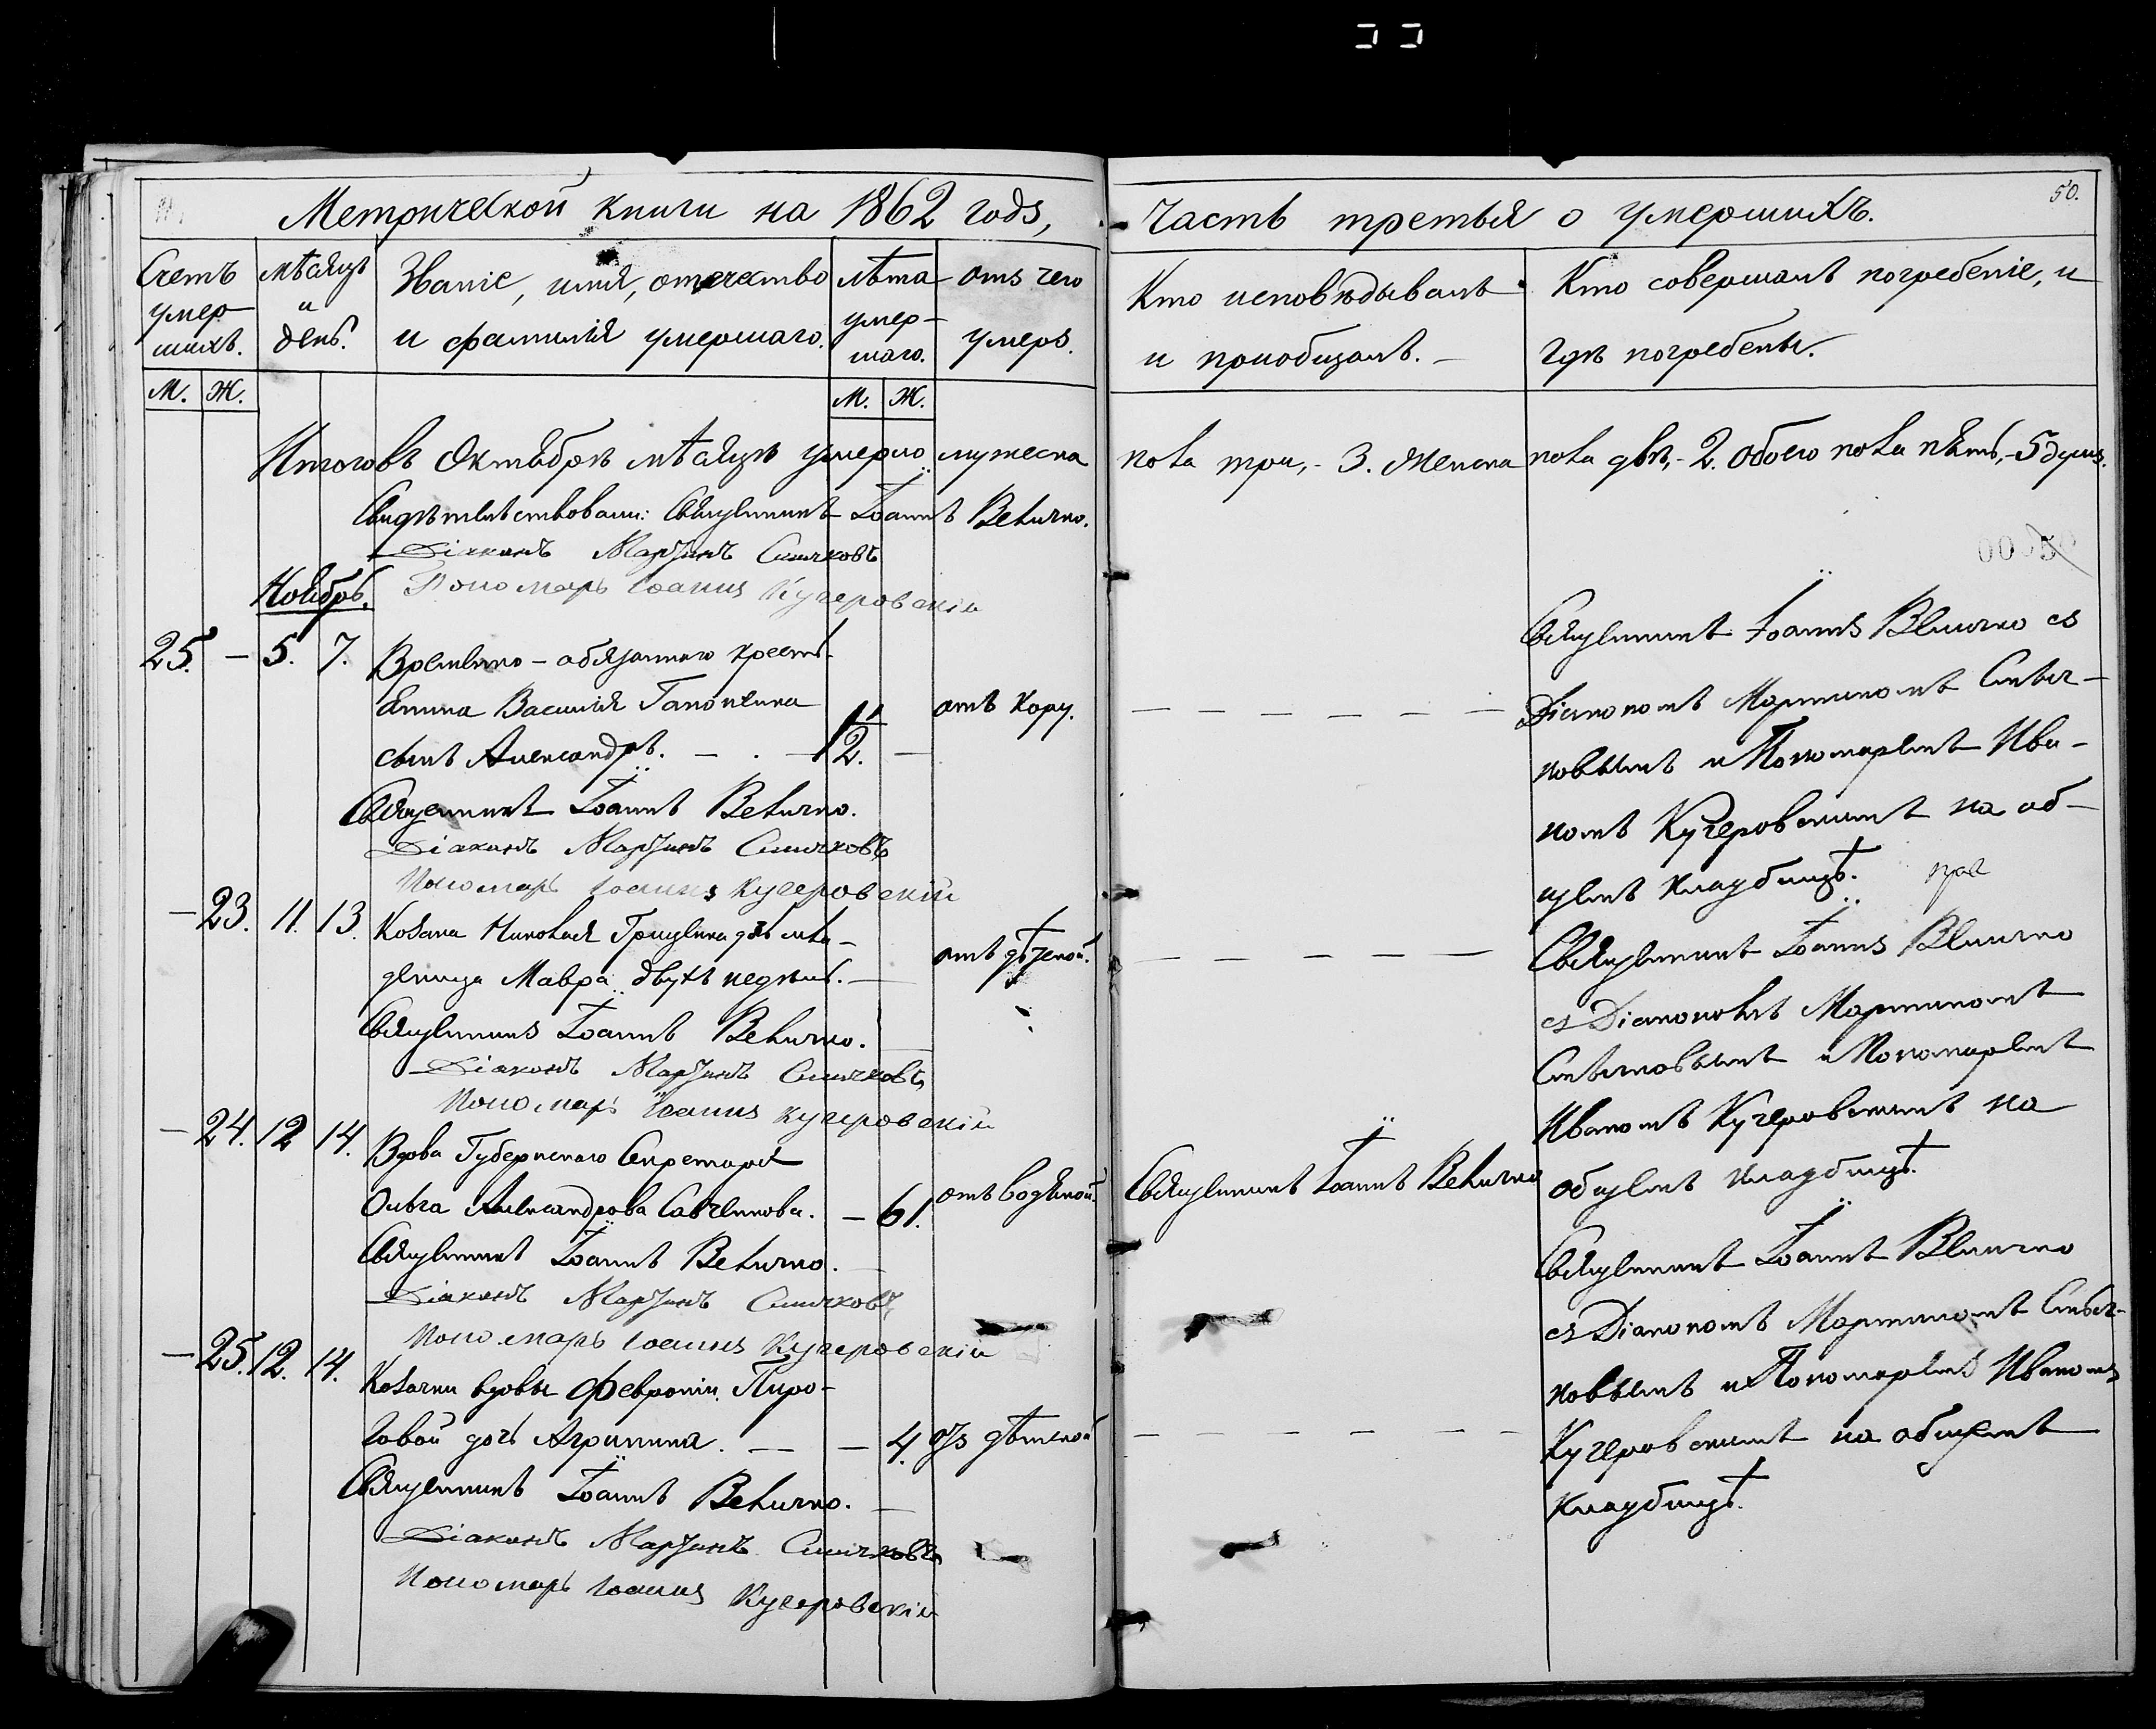 Метрической книги на 1862 годъ,
часть третья о умершихъ.
50.
Счетъ умер-шихъ.
мѣсяцъ и день.
Званіе, имя, отечество и фамилія умершаго.
лѣта умер-шаго.
отъ чего умеръ.
Кто исповѣдывалъ и пріобщалъ.
Кто совершалъ погребеніе, и гдѣ погребены.
М. Ж.
М. Ж.
Итого въ Октябрѣ мѣсяцѣ умерло мужеска пола три,- 3. Женска пола двѣ,- 2. Обоего пола пять,- 5 душъ.
Свидѣтельствовали: Священникъ Іоаннъ Величко.
Діаконъ Мартинъ
Пономарь Іоаннъ Кучеровскій
Ноябрь.
25. – 5. 7. Временно-обязаннаго кресть-
янина Василія
сынъ Александръ. 1/2. – отъ кору.
Священникъ Іоаннъ Величко.
Діаконъ Мартинъ
Пономарь Іоаннъ Кучеровскій
Священникъ Іоаннъ Величко съ
Діакономъ Мартиномъ
и Пономаремъ Ива-
номъ Кучеровскимъ на об-
щемъ кладбищѣ.
– 23. 11. 13. Козака Николая дочь мла-
деница Мавра двухъ недѣль. –
Священникъ Іоаннъ Величко.
Діаконъ Мартинъ
Пономарь Іоаннъ Кучеровскій
Священникъ Іоаннъ Величко
съ Діакономъ Мартиномъ
и Пономаремъ
Иваномъ Кучеровскимъ на
общемъ кладбищѣ.
– 24. 12 14. Вдова Губернскаго Секретаря
Ольга Александрова Савченкова. – 61. отъ водяной.
Священникъ Іоаннъ Величко
Священникъ Іоаннъ Величко.
Діаконъ Мартинъ
Пономарь Іоаннъ Кучеровскій
Священникъ Іоаннъ Величко
съ Діакономъ Мартиномъ
и Пономаремъ Иваномъ
Кучеровскимъ на общемъ
кладбищѣ.
– 25. 12. 14. Козачки вдовы Февроніи Пиро-
говой дочь Агрипина. – – 4. отъ дѣтской
Священникъ Іоаннъ Величко.
Діаконъ Мартинъ
Пономарь Іоаннъ Кучеровскій